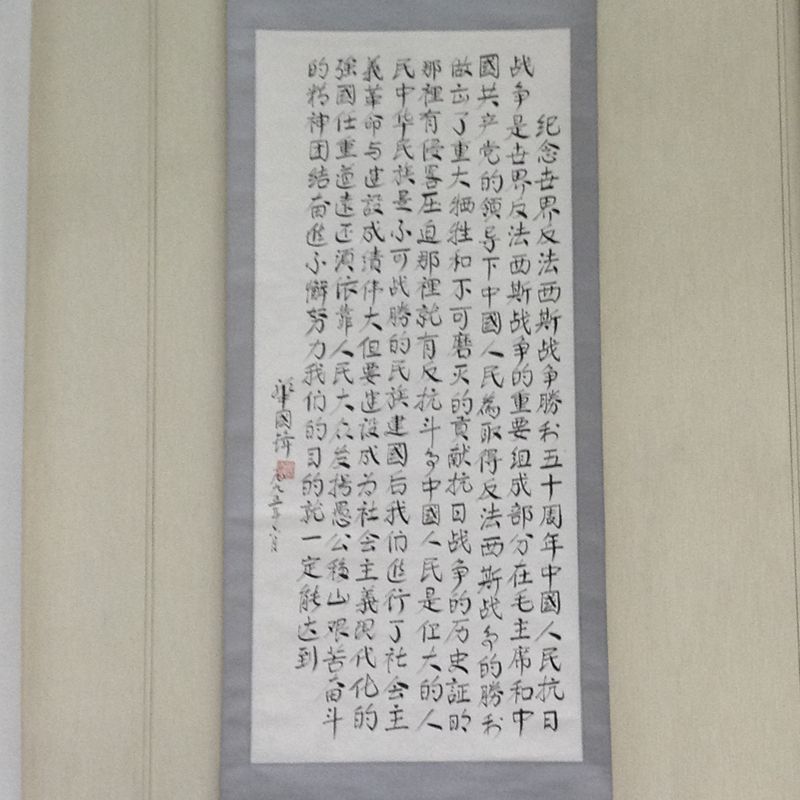 纪念世界反法西斯战争勝利五十周年中國人民抗日
战争是世界反法西斯战争的重要组成部分在毛主席和中
國共产党的领导下中國人民為取得反法西斯战争的勝利
做出了重大牺牲和不可磨灭的贡献抗日战争的历史証明
那裡有侵畧压迫那裡就有反抗斗争中國人民是伟大的人
民中华民族是不可战勝的民族建國后我们進行了社会主
義革命与建設成绩伟大但要建設成为社会主義现代化的
强國任重道遠还须依靠人民大众发扬愚公移山艰苦奋斗
的精神团结奋進不懈努力我们的目的就一定能达到
華國鋒
一九九五年六月